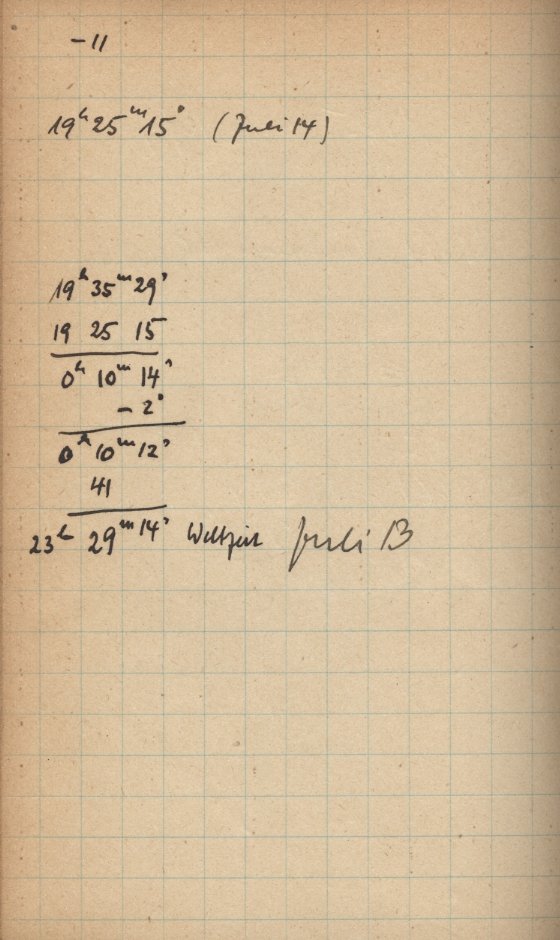 -11
19ʰ25ᵐ15ˢ (Juli 14)
19ʰ35ᵐ29ˢ
19 25 15
0ʰ 10ᵐ 14ˢ
- 2ˢ
0ʰ 10ᵐ 12ˢ
41
23ʰ 29ᵐ 14ˢ Weltzeit Juli 13